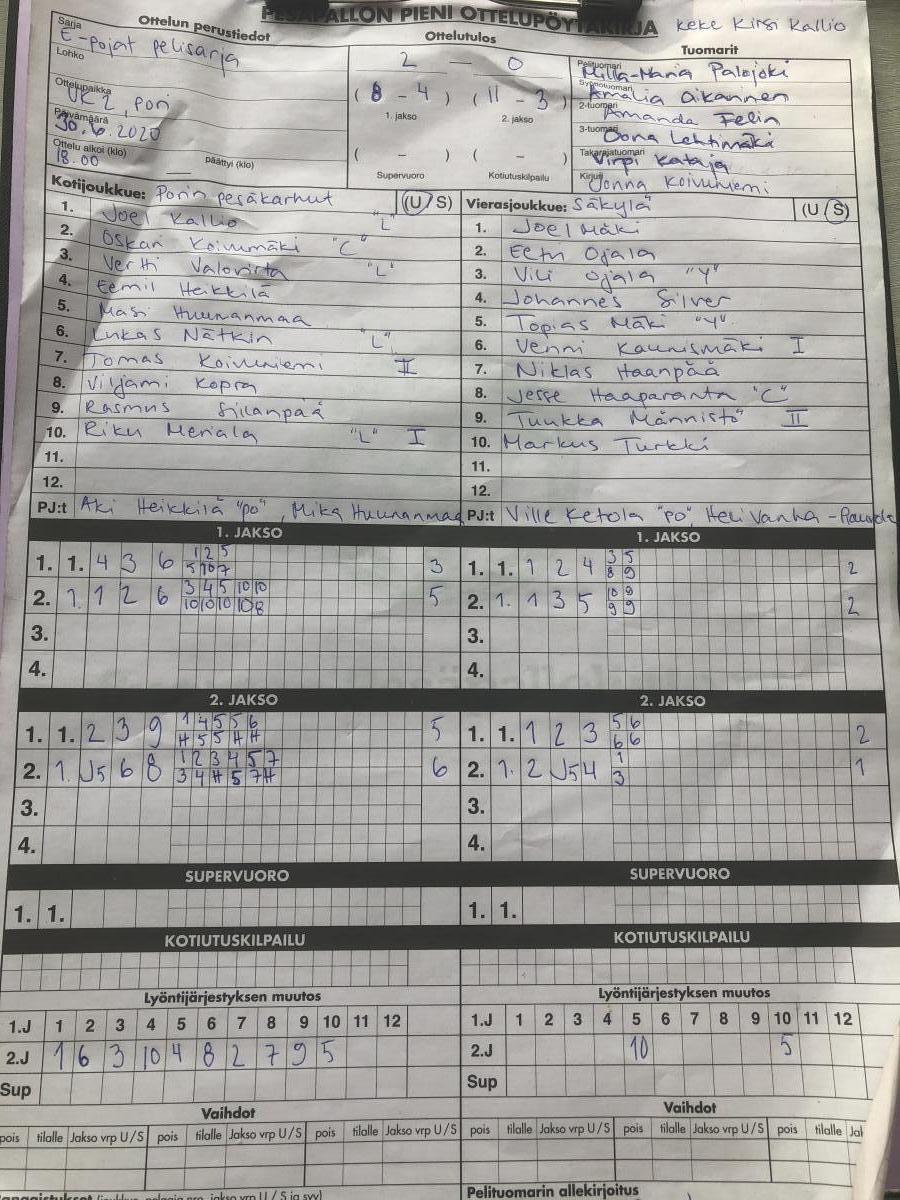 PESÄPALLON PIENI OTTELUPÖYTÄKIRJA Keke Kirsi Kallio
Ottelun perustiedot Ottelutulos Tuomarit
Sarja E-pojat pelisarja
Lohko
Ottelupaikka UK2, Pori
Päivämäärä 30.6.2020
Ottelu alkoi (klo) 18.00 päättyi (klo)
2 — 0
( 8 - 4 ) ( 11 - 3 )
1. jakso 2. jakso
( - ) ( - )
Supervuoro Kotiutuskilpailu
Pelituomari Milla-Maria Palojoki
Syöttötuomari Amalia Aikaninen
2-tuomari Amanda Felin
3-tuomari Oona Lehtimäki
Takarajatuomari Virpi Kataja
Kirjuri Jonna Koivuniemi
Kotijoukkue: Porin pesäkarhut (U/S)
1. Joel Kallio "L"
2. Oskari Koivumäki "C"
3. Vertti Valovirta "L"
4. Eemil Heikkilä
5. Masi Huunanmaa
6. Lukas Nätkin "L"
7. Tomas Koivuniemi II
8. Viljami Kopra
9. Rasmus Sillanpää
10. Riku Meriala "L" I
11.
12.
PJ:t Aki Heikkilä "PO", Mika Huunanmaa
Vierasjoukkue: Säkylä (U/S)
1. Joel Mäki
2. Eetu Ojala
3. Vili Ojala "Y"
4. Johannes Silver
5. Topias Mäki "Y"
6. Venni Kaunismäki I
7. Niklas Haanpää
8. Jesse Haaparanta "C"
9. Tuukka Männistö II
10. Markus Turkki
11.
12.
PJ:t Ville Ketola "PO", Heli Vanha-
1. JAKSO
1. 1. 4 3 6 1 2 5 3
5 10 7
2. 1. 1 2 6 3 4 5 10 10 5
10 10 10 10 8
3.
4.
1. JAKSO
1. 1. 1 2 4 3 5 2
8 9
2. 1. 1 3 5 10 9 2
9 9
3.
4.
2. JAKSO
1. 1. 2 3 9 1 4 5 5 6 5
H 5 5 H H
2. 1. J5 6 8 1 2 3 4 5 7 6
3 4 H 5 7 H
3.
4.
2. JAKSO
1. 1. 1 2 3 5 6 2
6 6
2. 1. 2 J5 4 1 1
3
3.
4.
SUPERVUORO SUPERVUORO
1. 1. 1. 1.
KOTIUTUSKILPAILU KOTIUTUSKILPAILU
Lyöntijärjestyksen muutos
1.J 1 2 3 4 5 6 7 8 9 10 11 12
2.J 1 6 3 10 4 8 2 7 9 5
Sup
Lyöntijärjestyksen muutos
1.J 1 2 3 4 5 6 7 8 9 10 11 12
2.J 10 5
Sup
Vaihdot Vaihdot
pois tilalle Jakso vrp U/S pois tilalle Jakso vrp U/S pois tilalle Jakso vrp U/S
pois tilalle Jakso vrp U/S pois tilalle Jakso vrp U/S pois tilalle Jak
Pelituomarin allekirjoitus